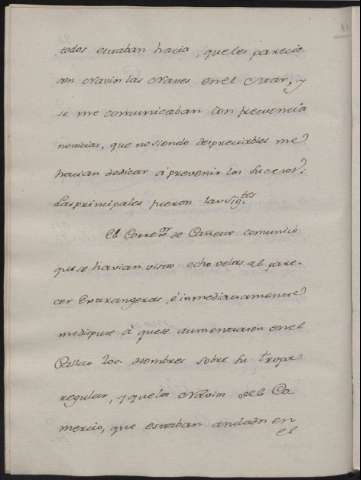 todos estaban hacia, que les parecia
ser Navios las Naves en el Mar, y
se me comunicaban con frecuencia
noticias, que no siendo despreciables me
hacian dedicar á prevenir los sucesos.
Las principales fueron las sig.tes
El Correg.or de comunicó
que se havian visto ocho velas al pare-
cer Extrangeras, é inmediatamente
dispuse á que se aumentasen en el
Callao 200 Hombres sobre su tropa
regular, y que los Navios del Co-
mercio, que estaban anclados en
el